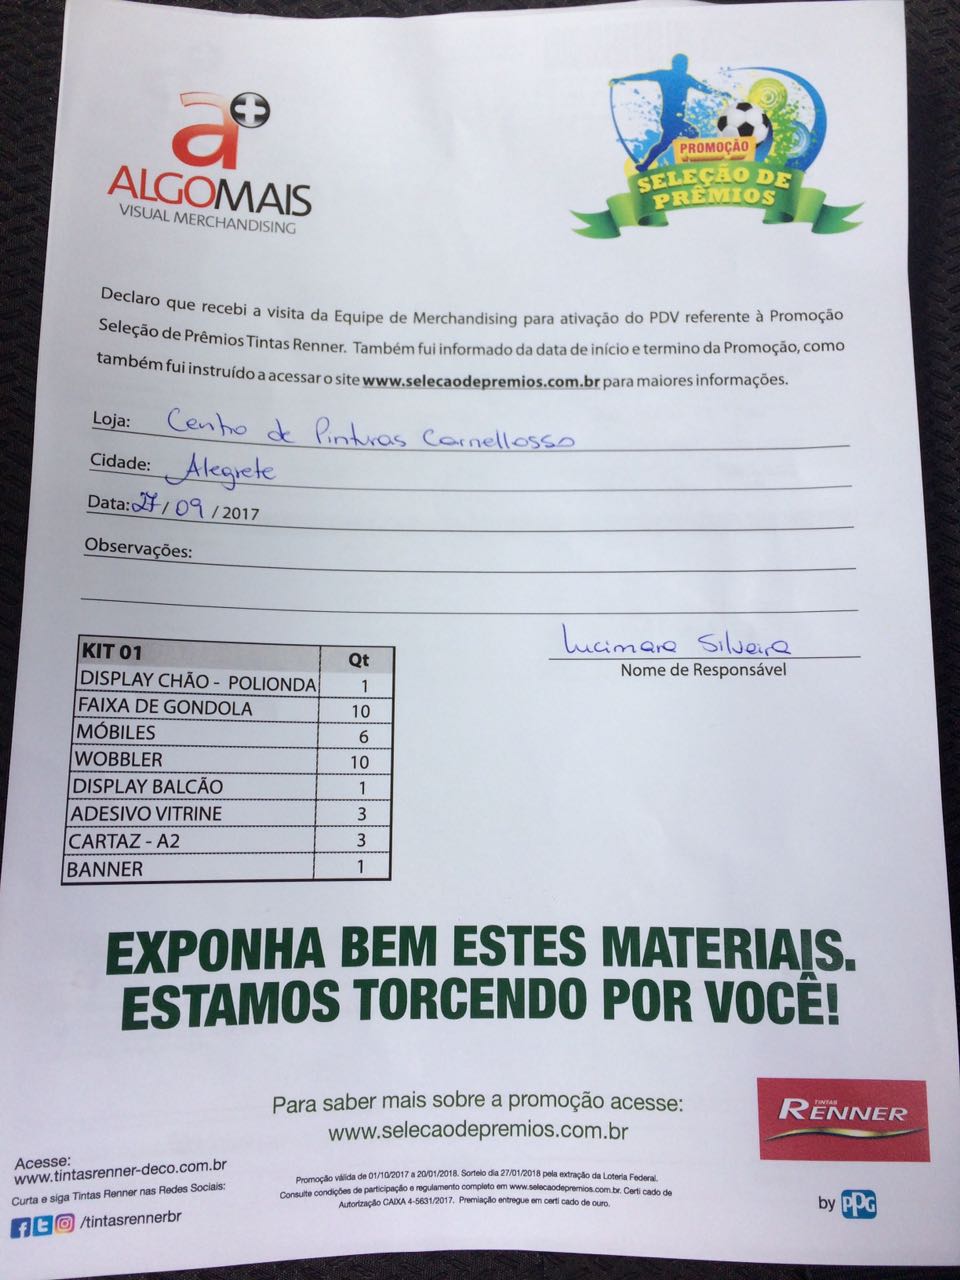 a+
ALGOMAIS
VISUAL MERCHANDISING
PROMOÇÃO
SELEÇÃO DE
PRÊMIOS
Declaro que recebi a visita da Equipe de Merchandising para ativação do PDV referente à Promoção
Seleção de Prêmios Tintas Renner. Também fui informado da data de início e termino da Promoção, como
também fui instruído a acessar o site www.selecaodepremios.com.br para maiores informações.
Loja: Centro de Pinturas Carnellosso
Cidade: Alegrete
Data: 27/09/2017
Observações:
Lucimara Silveira
Nome de Responsável
KIT 01 Qt
DISPLAY CHÃO - POLIONDA 1
FAIXA DE GONDOLA 10
MÓBILES 6
WOBBLER 10
DISPLAY BALCÃO 1
ADESIVO VITRINE 3
CARTAZ - A2 3
BANNER 1
EXPONHA BEM ESTES MATERIAIS.
ESTAMOS TORCENDO POR VOCÊ!
Para saber mais sobre a promoção acesse:
www.selecaodepremios.com.br
TINTAS
RENNER
Acesse:
www.tintasrenner-deco.com.br
Curta e siga Tintas Renner nas Redes Sociais:
/tintasrennerbr
Promoção válida de 01/10/2017 a 20/01/2018. Sorteio dia 27/01/2018 pela extração da Loteria Federal.
Consulte condições de participação e regulamento completo em www.selecaodepremios.com.br. Certi cado de
Autorização CAIXA 4-5631/2017. Premiação entregue em certi cado de ouro.
by PPG